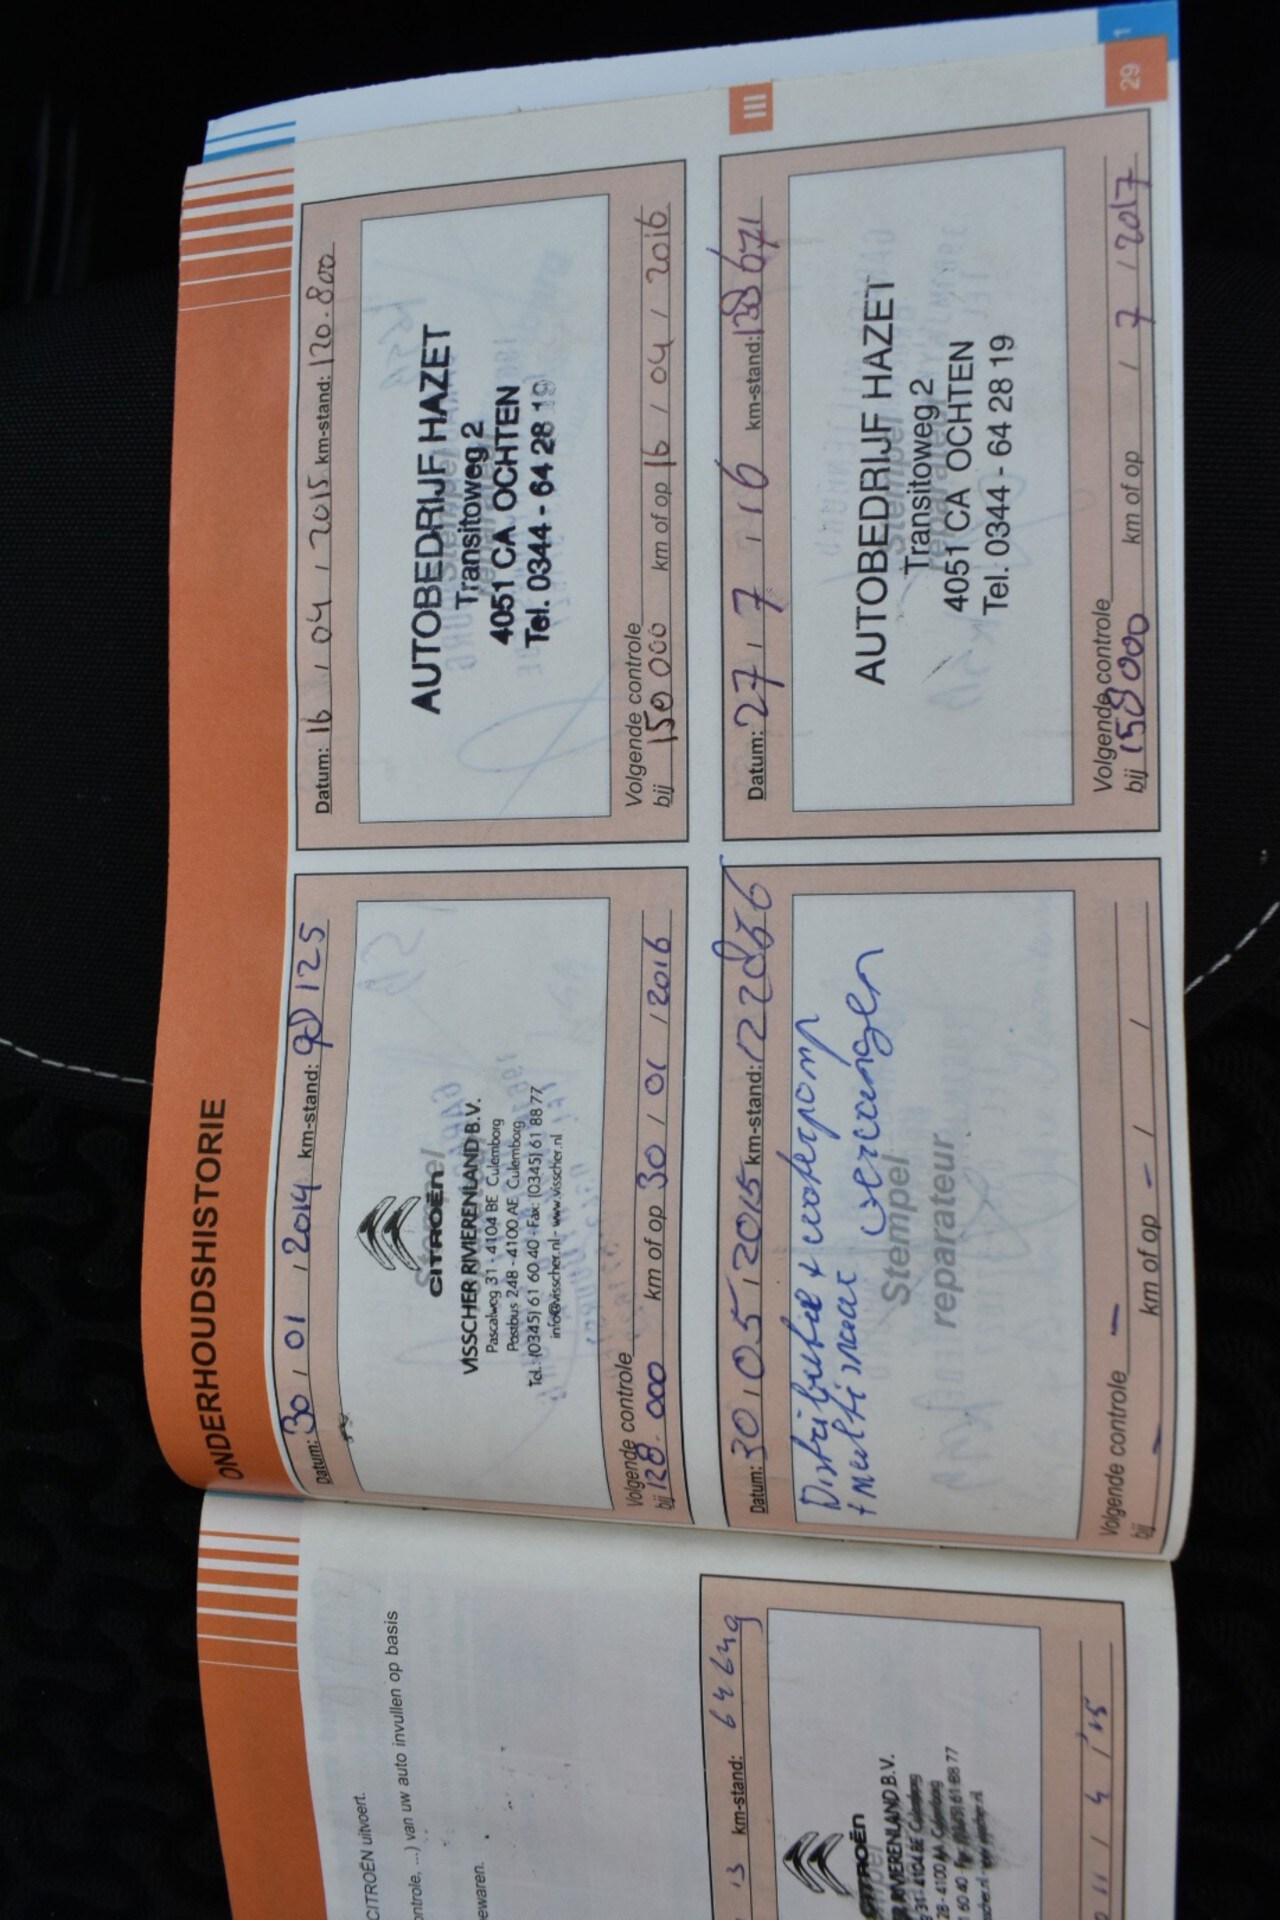 CITROËN uitvoert.
ontrole, ...) van uw auto invullen op basis
ewaren.
13 km-stand: 64649
CITROËN
RIVIERENLAND B.V.
11 / 4 / '15
ONDERHOUDSHISTORIE
Datum: 30 / 01 / 2014 km-stand: 90125
CITROËN
VISSCHER RIVIERENLAND B.V.
Pascalweg 31 - 4104 BE Culemborg
Postbus 248 - 4100 AE Culemborg
Tel.: (0345) 61 60 40 - Fax: (0345) 61 88 77
info@visscher.nl - www.visscher.nl
Volgende controle
bij 120.000 km of op 30 / 01 / 2016
Datum: 16 / 04 / 2015 km-stand: 120.800
AUTOBEDRIJF HAZET
Transitoweg 2
4051 CA OCHTEN
Tel. 0344 - 64 28 19
Volgende controle
bij 150 000 km of op 16 / 04 / 2016
Datum: 30 / 05 / 2015 km-stand:
Distributie + waterpomp
+ multisnaar vervangen
Stempel
reparateur
Volgende controle
bij - km of op - / /
III
Datum: 27 / 7 / 16 km-stand: 138671
AUTOBEDRIJF HAZET
Transitoweg 2
4051 CA OCHTEN
Tel. 0344 - 64 28 19
Volgende controle
bij km of op / 7 / 2017
29
1